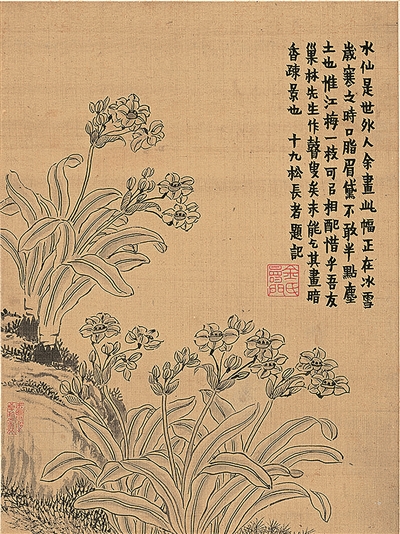 水仙是世外人余畫此幅正在冰雪
歲寒之時口脂眉黛不敢半點塵
土也惟江梅一枝可㠯相配惜乎吾友
巢林先生作瞽叟矣未能乞其畫暗
香疎景也 十九松長者題記